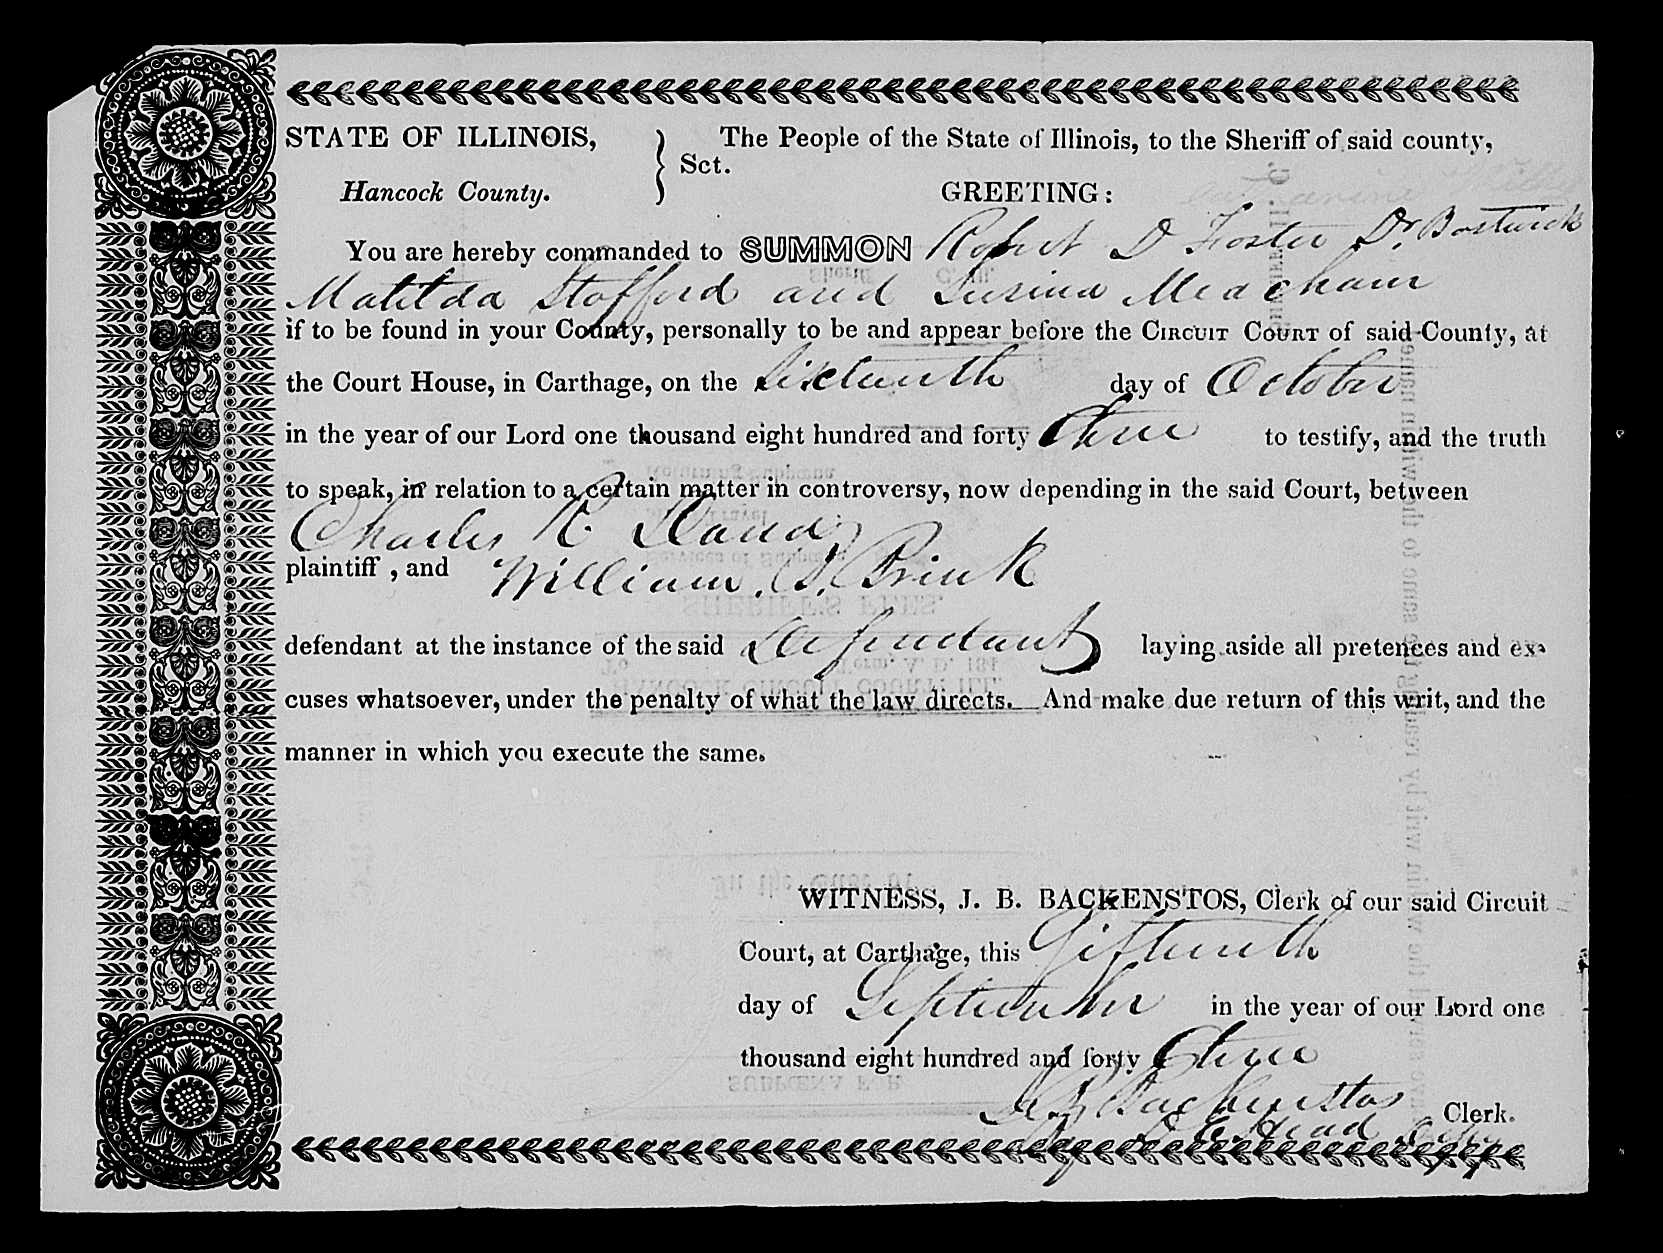 STATE OF ILLINOIS, } Sct. The People of the State of Illinois, to the Sheriff of said county,
Hancock County. GREETING:
You are hereby commanded to SUMMON Robert D Foster Dr. Bostwick
Matilda Stofford and Lusina Meacham
if to be found in your County, personally to be and appear before the CIRCUIT COURT of said County, at
the Court House, in Carthage, on the Sixteenth day of October
in the year of our Lord one thousand eight hundred and forty three to testify, and the truth
to speak, in relation to a certain matter in controversy, now depending in the said Court, between
Charles R. Dana
plaintiff , and William. D. Brink
defendant at the instance of the said Defendant laying aside all pretences and ex-
cuses whatsoever, under the penalty of what the law directs. And make due return of this writ, and the
manner in which you execute the same.
WITNESS, J. B. BACKENSTOS, Clerk of our said Circuit
Court, at Carthage, this Fifteenth
day of September in the year of our Lord one
thousand eight hundred and forty three
J B Backenstos Clerk.
By Head